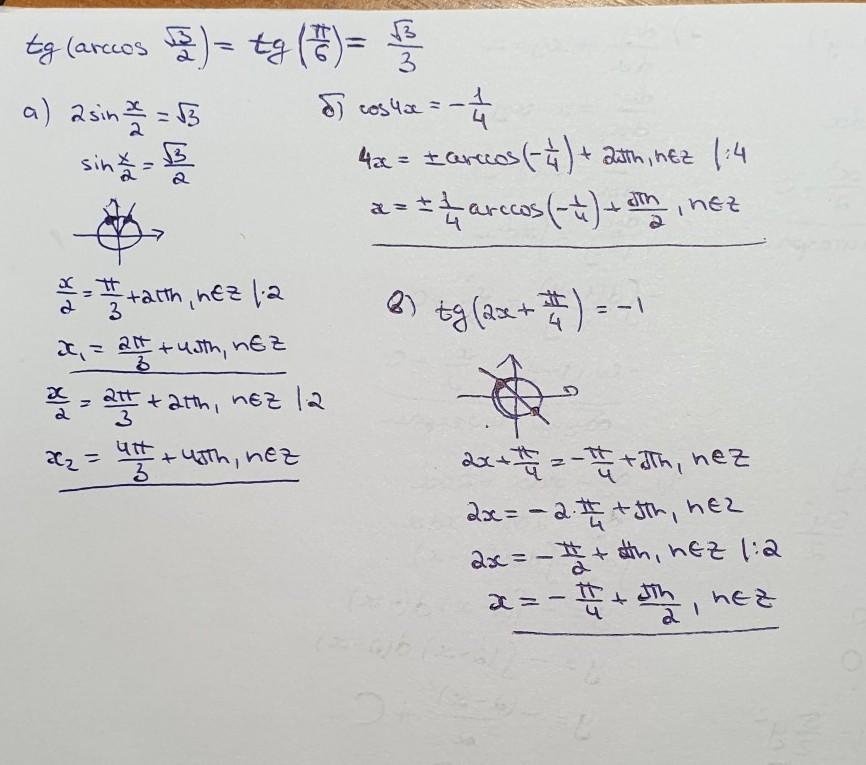 tg(arccos √3/2) = tg(π/6) = √3/3
а) 2sin x/2 = √3
sin x/2 = √3/2
x/2 = π/3 + 2πn, n∈Z |·2
x₁ = 2π/3 + 4πn, n∈Z
x/2 = 2π/3 + 2πn, n∈Z |·2
x₂ = 4π/3 + 4πn, n∈Z
б) cos4x = -1/4
4x = ±arccos(-1/4) + 2πn, n∈Z |:4
x = ±1/4 arccos(-1/4) + πn/2, n∈Z
в) tg(2x + π/4) = -1
2x + π/4 = -π/4 + πn, n∈Z
2x = -2·π/4 + πn, n∈Z
2x = -π/2 + πn, n∈Z |:2
x = -π/4 + πn/2, n∈Z